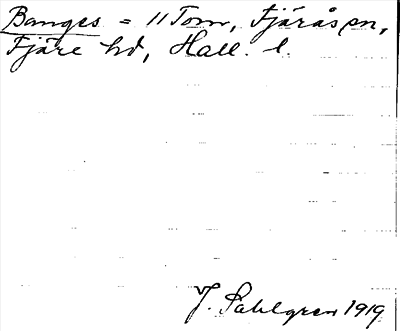 Banges = 11 Torn, Fjärås sn,
Fjäre hd, Hall. l.
J. Sahlgren 1919